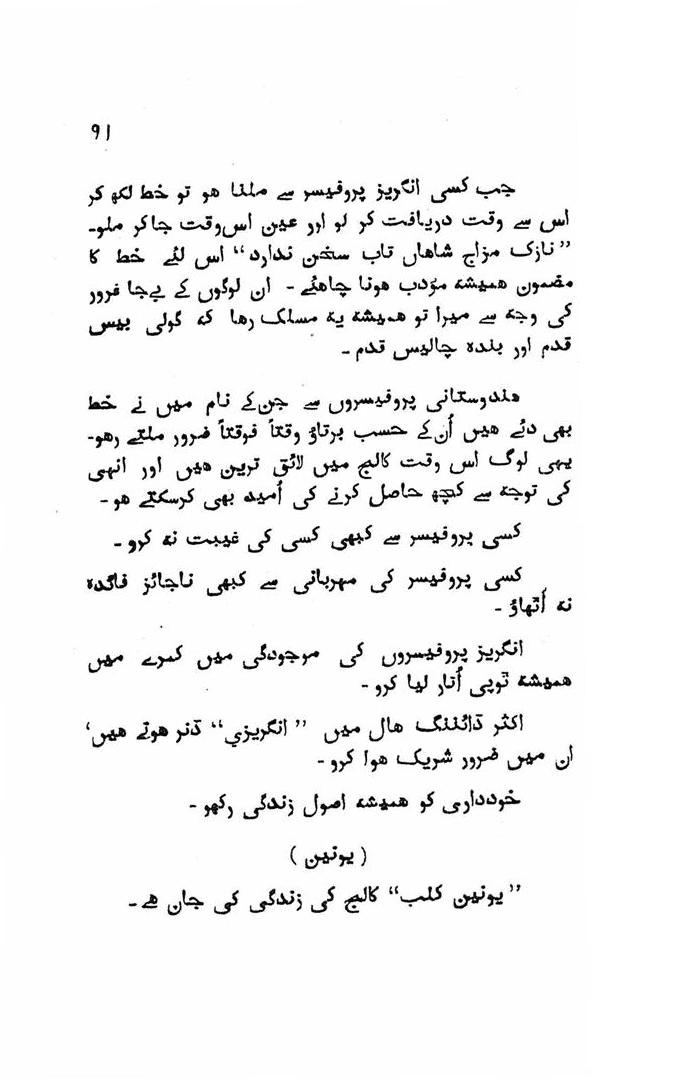 ۹۱
جب کسی انگریز پروفیسر سے ملنا ھو تو خط لکھ کر
اس سے وقت دریافت کر لو اور عین اس وقت جا کر ملو۔
”نازک مزاج شاھاں تاب سخن ندارد“ اس لئے خط کا
مضمون ھمیشہ مؤدب ھونا چاھئے ۔ ان لوگوں کے بےجا غرور
کی وجہ سے میرا تو ھمیشہ یہ مسلک رھا کہ گولی بیس
قدم اور بندہ چالیس قدم ۔
ھندوستانی پروفیسروں سے جن کے نام میں نے خط
بھی دئے ھیں اُن کے حسب برتاؤ وقتاً فوقتاً ضرور ملتے رھو۔
یہی لوگ اس وقت کالج میں لائق ترین ھیں اور انھی
کی توجہ سے کچھ حاصل کرنے کی اُمید بھی کرسکتے ھو ۔
کسی پروفیسر سے کبھی کسی کی غیبت نہ کرو ۔
کسی پروفیسر کی مہربانی سے کبھی ناجائز فائدہ
نہ اُٹھاؤ ۔
انگریز پروفیسروں کی موجودگی میں کمرے میں
ھمیشہ ٹوپی اُتار لیا کرو ۔
اکثر ڈائننگ ھال میں ”انگریزی“ ڈنر ھوتے ھیں‘
ان میں ضرور شریک ھوا کرو ۔
خودداری کو ھمیشہ اصول زندگی رکھو ۔
( یونین )
”یونین کلب“ کالج کی زندگی کی جان ھے ۔